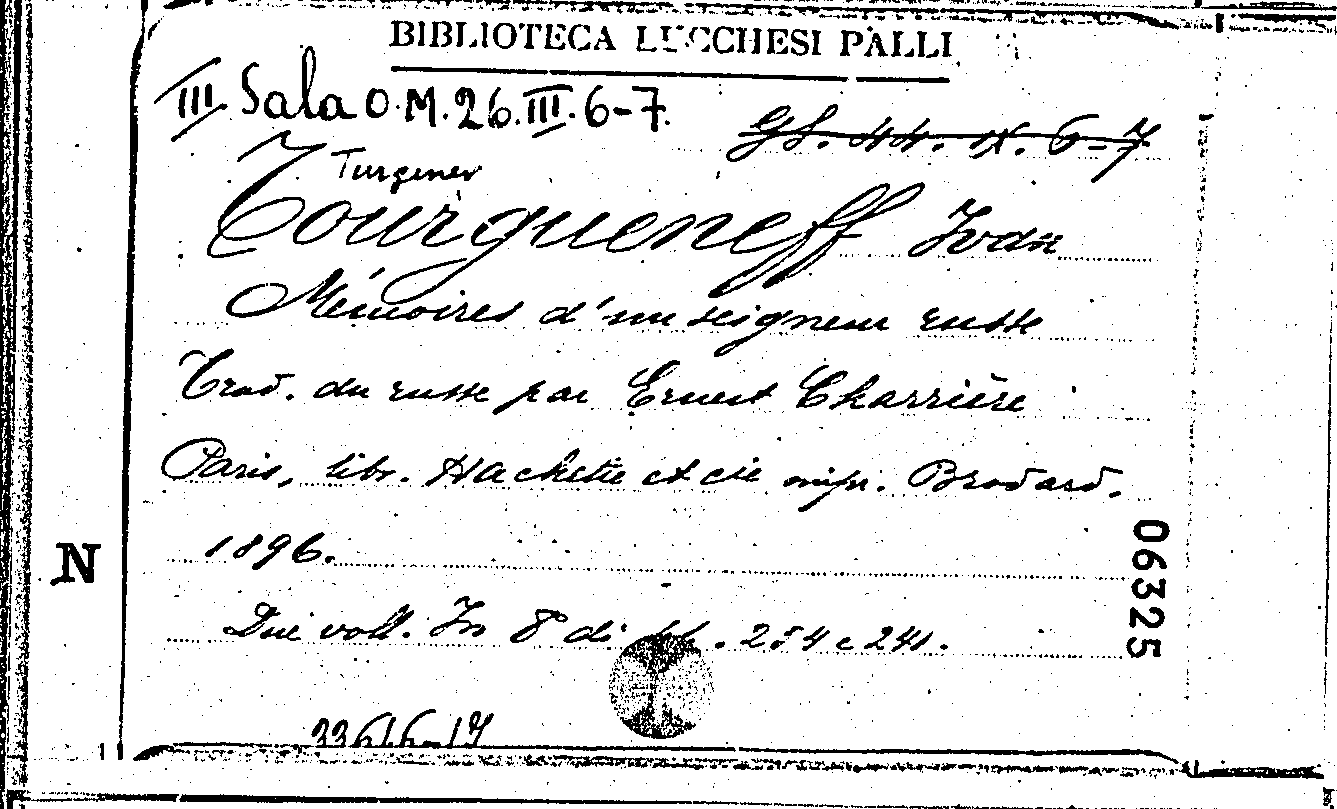 BIBLIOTECA LUCCHESI PALLI
III Sala O.M.26.III.6-7.
Gl. 44. IX. 6-7
Turgenev
Tourgueneff Ivan
Mémoires d'un seigneur russe
Trad. du russe par Ernest Charrière
Paris, libr. Hachette et cie impr. Brodard.
1896.
N
06325
Due voll. In 8° di pp. 254 e 241.
33616-17